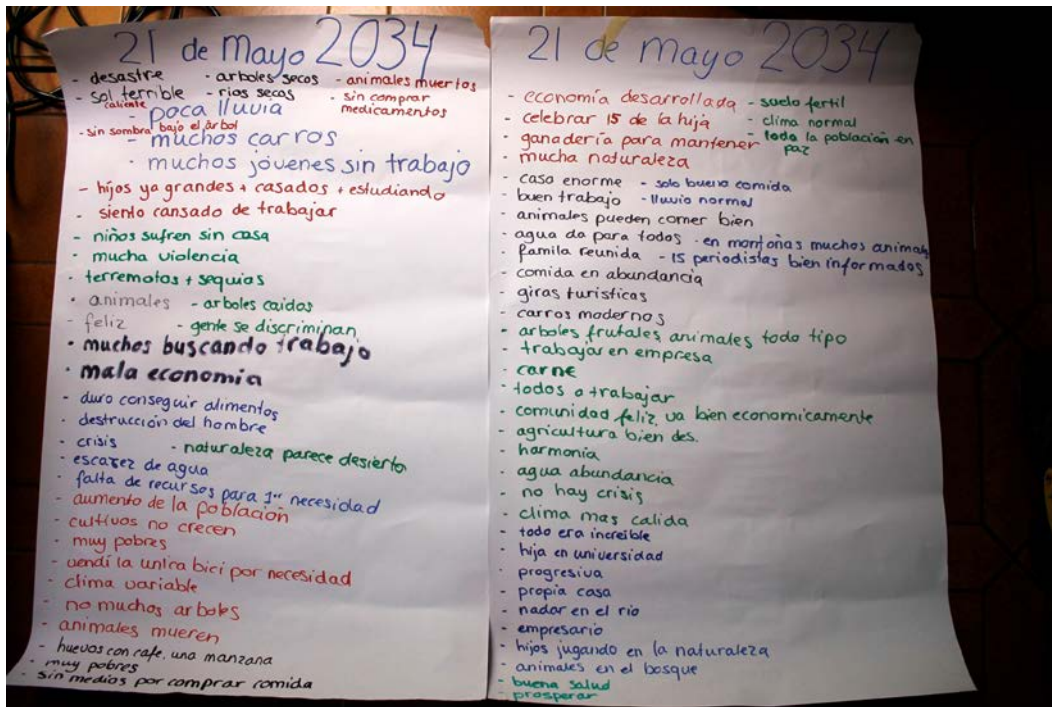 21 de Mayo 2034
- desastre - arboles secos - animales muertos
- sol terrible - rios secos - sin comprar medicamentos
caliente
- poca lluvia
- sin sombra bajo el árbol
- muchos carros
- muchos jóvenes sin trabajo
- hijos ya grandes + casados + estudiando
- siento cansado de trabajar
- niños sufren sin casa
- mucha violencia
- terremotos + sequias
- animales - arboles caidos
- feliz - gente se discriminan
- muchos buscando trabajo
- mala economia
- duro conseguir alimentos
- destrucción del hombre
- crisis - naturaleza parece desierto
- escasez de agua
- falta de recursos para 1er necesidad
- aumento de la población
- cultivos no crecen
- muy pobres
- vendí la unica bici por necesidad
- clima variable
- no muchos arboles
- animales mueren
- huevos con cafe, una manzana
- muy pobres
- sin medios por comprar comida
21 de mayo 2034
- economía desarrollada - suelo fertil
- celebrar 15 de la hija - clima normal
- ganadería para mantener - toda la población en paz
- mucha naturaleza
- casa enorme - solo buena comida
- buen trabajo - lluvia normal
- animales pueden comer bien
- agua da para todos - en montañas muchos animales
- familia reunida - 15 periodistas bien informados
- comida en abundancia
- giras turisticas
- carros modernos
- arboles frutales, animales todo tipo
- trabajar en empresa
- carne
- todos a trabajar
- comunidad feliz, va bien economicamente
- agricultura bien des.
- harmonia
- agua abundancia
- no hay crisis
- clima mas calida
- todo era increíble
- hija en universidad
- progresiva
- propia casa
- nadar en el río
- empresario
- hijos jugando en la naturaleza
- animales en el bosque
- buena salud
- prosperar